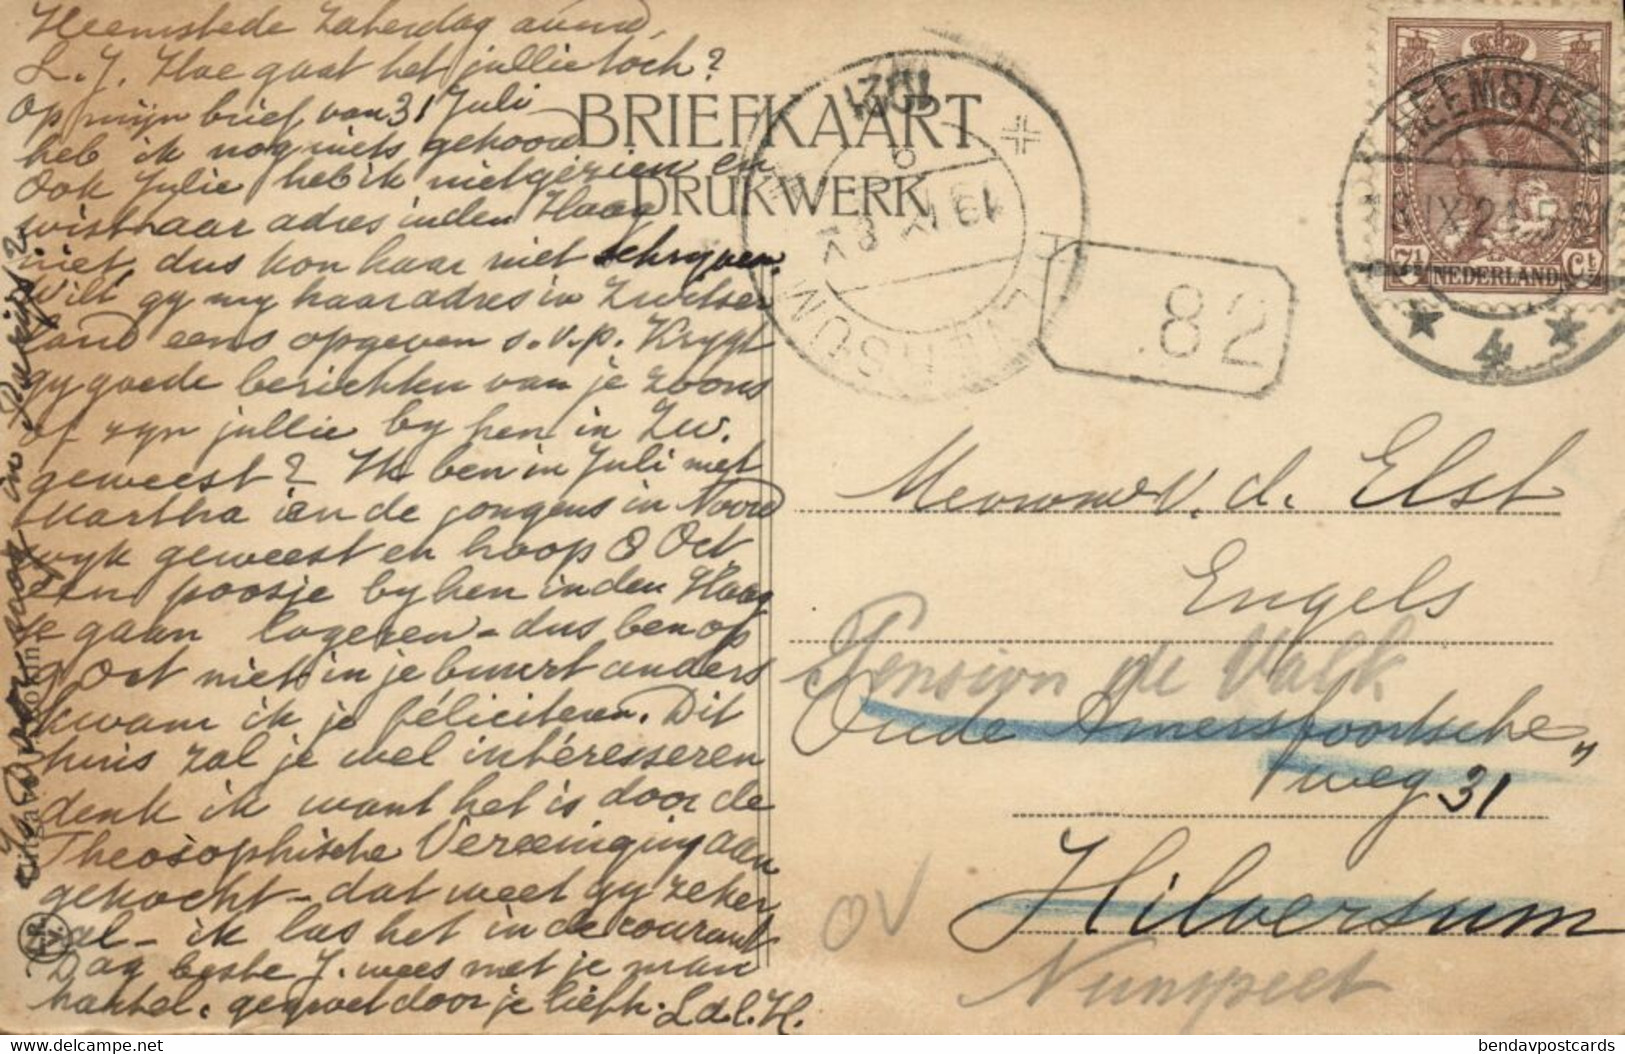 Heemstede Zaterdag avond,
L. J. Hoe gaat het jullie toch?
Op mijn brief van 31 Juli
heb ik nog niets gehoord
Ook Julie heb ik niet gezien en
wist haar adres in den Haag
niet, dus kon haar niet schryven.
Wilt gy my haar adres in Zwitser
land eens opgeven s.v.p. Krygt
gy goede berichten van je zoons
of zyn jullie by hen in Zw.
geweest? Ik ben in Juli met
Martha en de jongens in Noord
wyk geweest en hoop 8 Oct
een poosje by hen in den Haag
te gaan logeren - dus ben op
9 Oct niet in je buurt anders
kwam ik je féliciteren. Dit
huis zal je wel intéresseren
denk ik want het is door de
Theosophische Vereeniging aan
gekocht - dat weet gy zeker
al - ik las het in de courant
Dag beste J. wees met je man
hartel. gegroet door je liefh. L d. l. H.
in Parijs?
BRIEFKAART
DRUKWERK
1921
82
HEEMSTEDE
7½ NEDERLAND Ct
4
HILVERSUM
Mevrouw v. d. Elst
Engels
Pension de Valk
Oude Amersfoortsche
weg 31
Hilversum
Nunspeet
OV
bendavpostcards